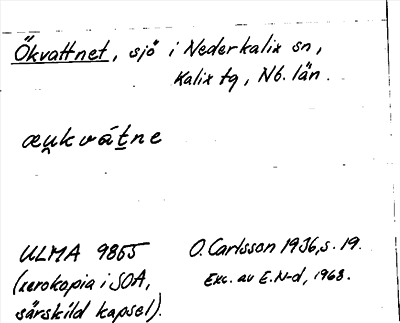 Ökvattnet, sjö i Nederkalix sn,
Kalix tg, Nb. län.
æu̯kvátne
ULMA 9855 O. Carlsson 1936, s. 19.
(xerokopia i SOA, Exc. av E. N-d, 1968.
särskild kapsel).